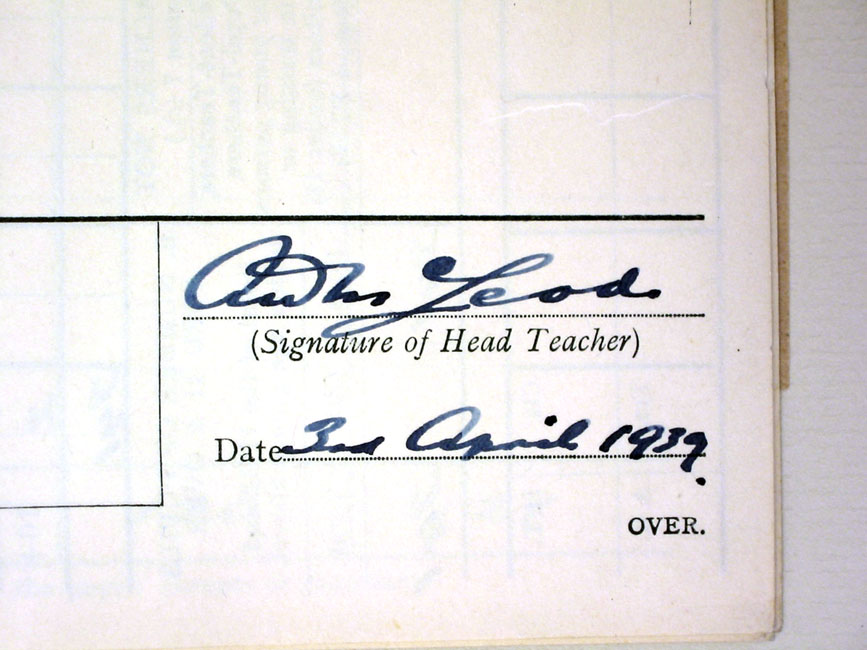 Arthur Leod
(Signature of Head Teacher)
Date 3rd April 1939.
OVER.